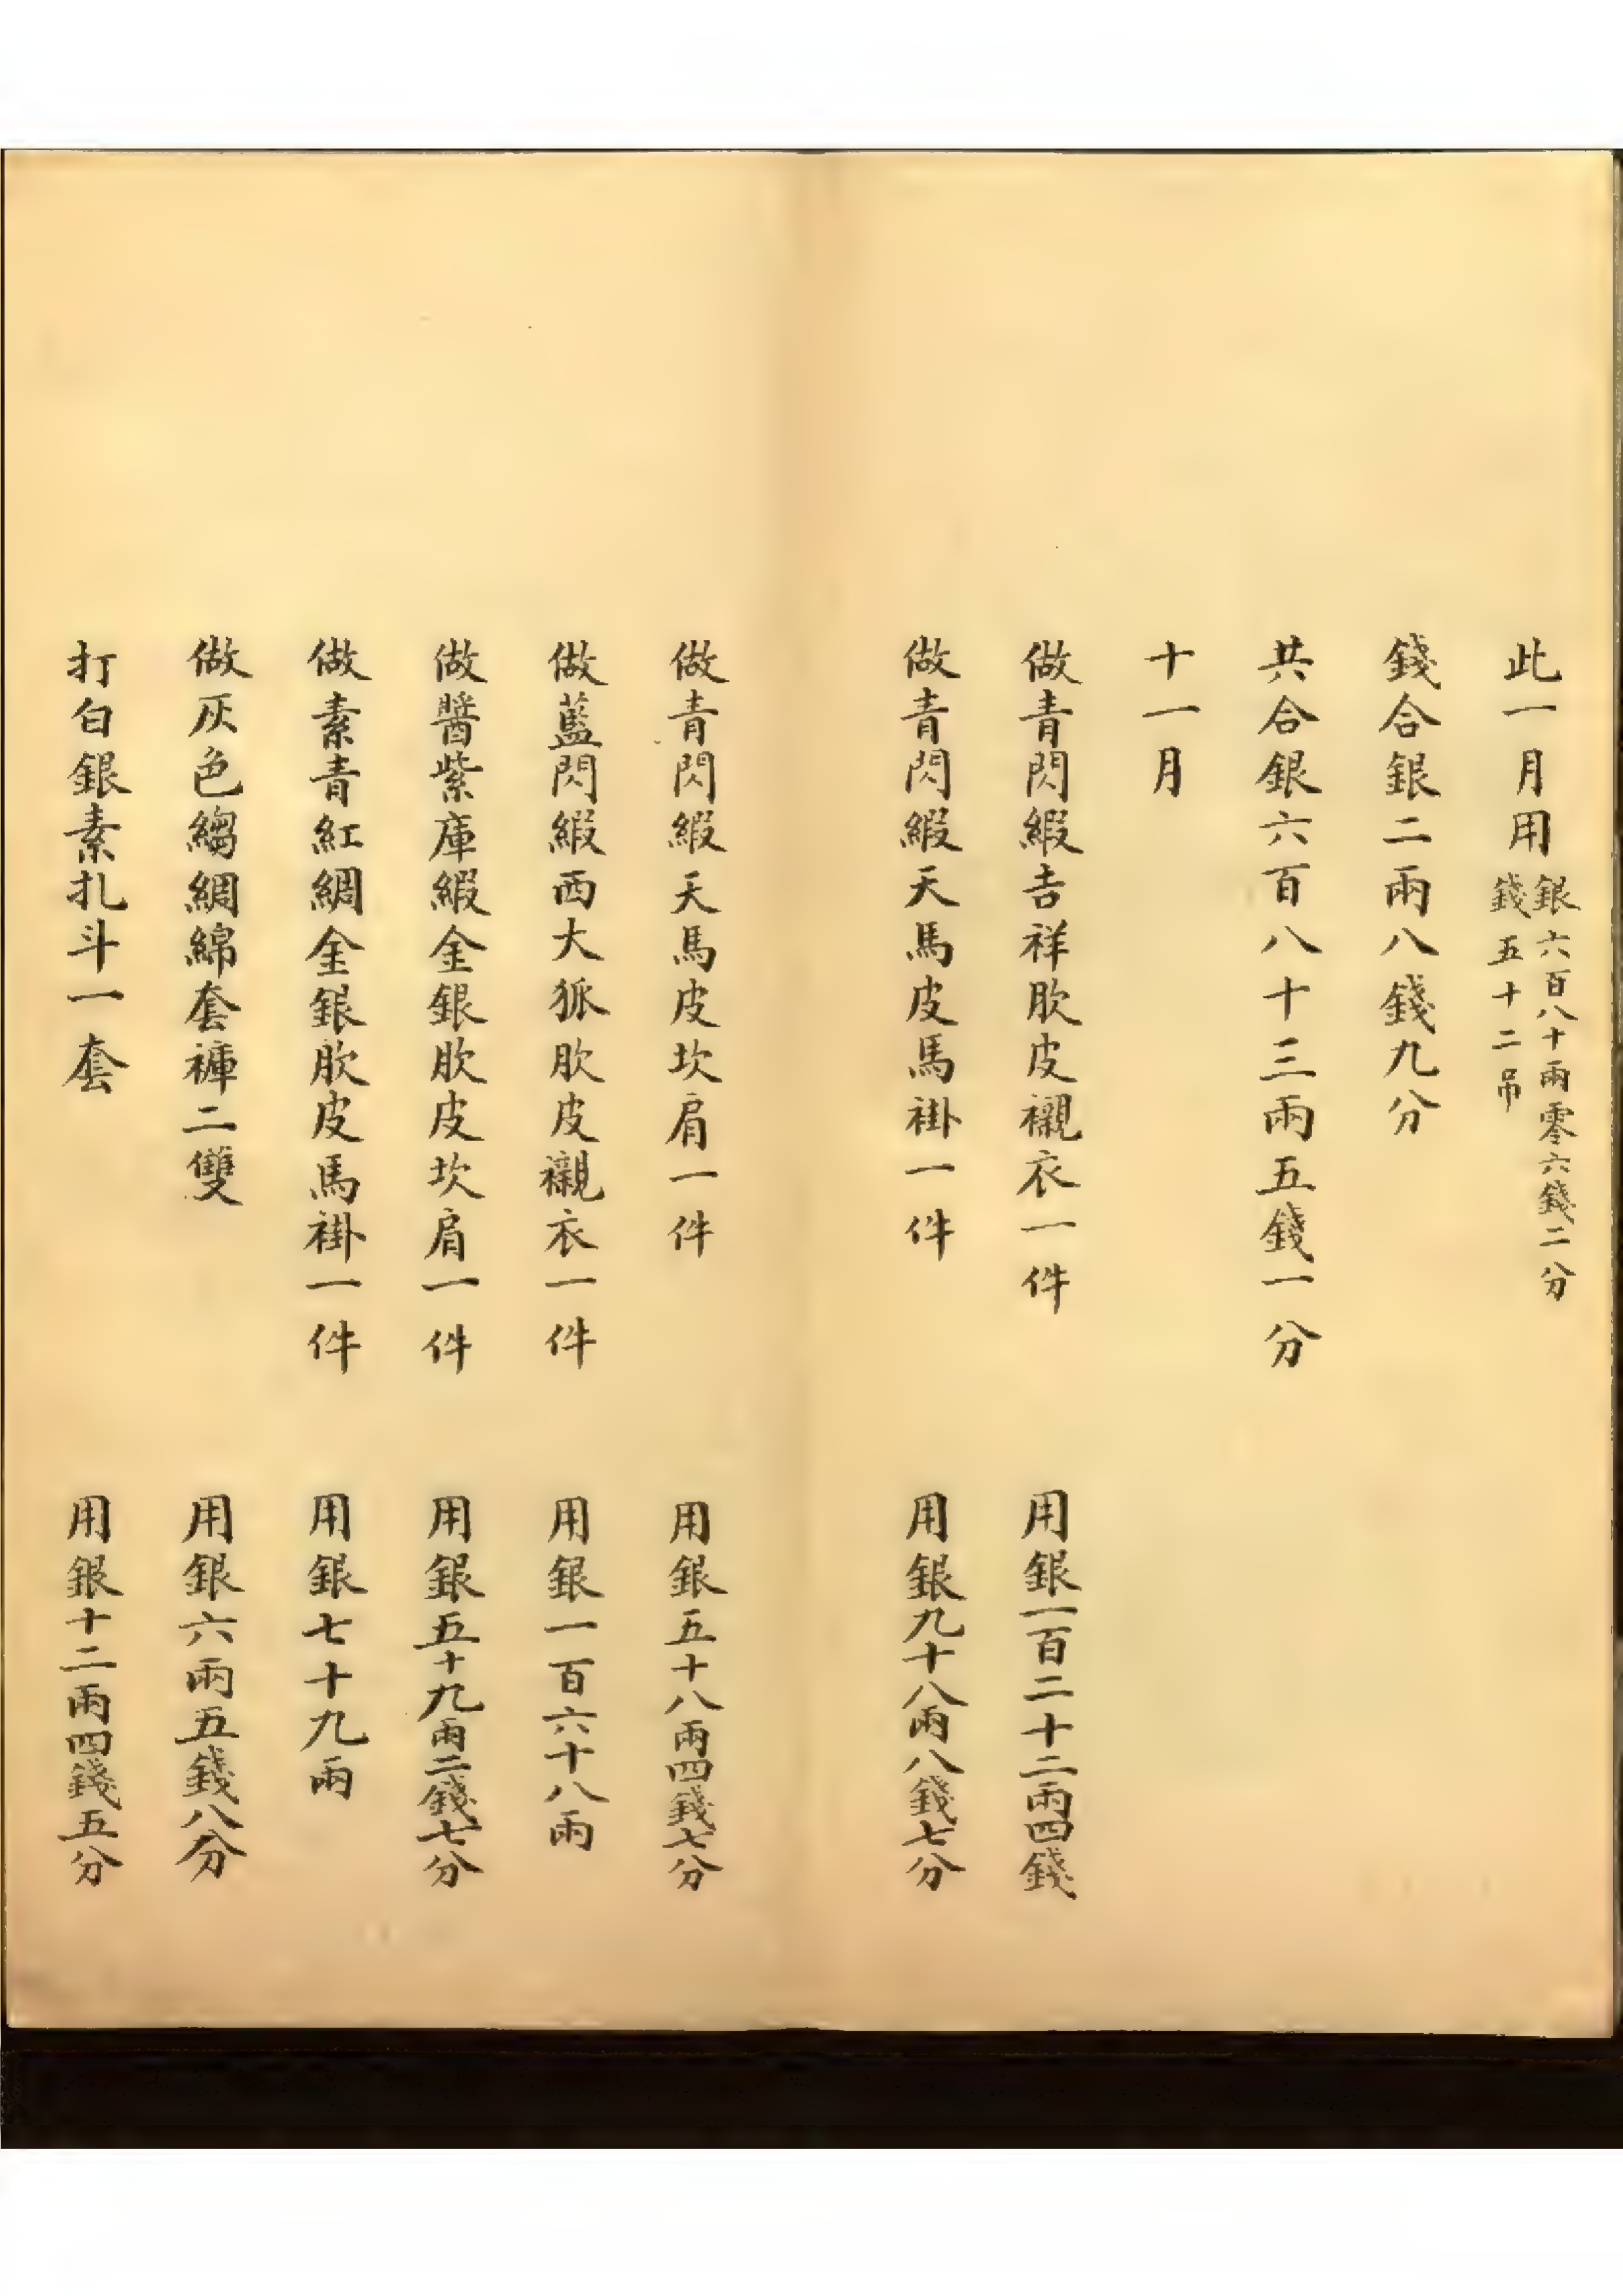 此一月用銀六百八十兩零六錢二分
錢五十二吊
錢合銀二兩八錢九分
共合銀六百八十三兩五錢一分
十一月
做青閃緞吉祥肷皮襯衣一件 用銀一百二十二兩四錢
做青閃緞天馬皮馬褂一件 用銀九十八兩八錢七分
做青閃緞天馬皮坎肩一件 用銀五十八兩四錢七分
做藍閃緞西大狐肷皮襯衣一件 用銀一百六十八兩
做醬紫庫緞金銀肷皮坎肩一件 用銀五十九兩二錢七分
做素青紅綢金銀肷皮馬褂一件 用銀七十九兩
做灰色縐綢綿套褲二雙 用銀六兩五錢八分
打白銀素扎斗一套 用銀十二兩四錢五分